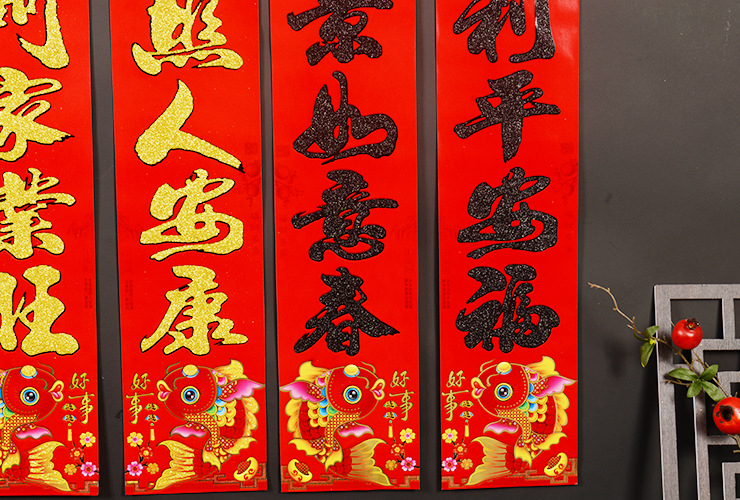 利平安福
好事
景如意春
好事
照人安康
好事
利家業旺
好事